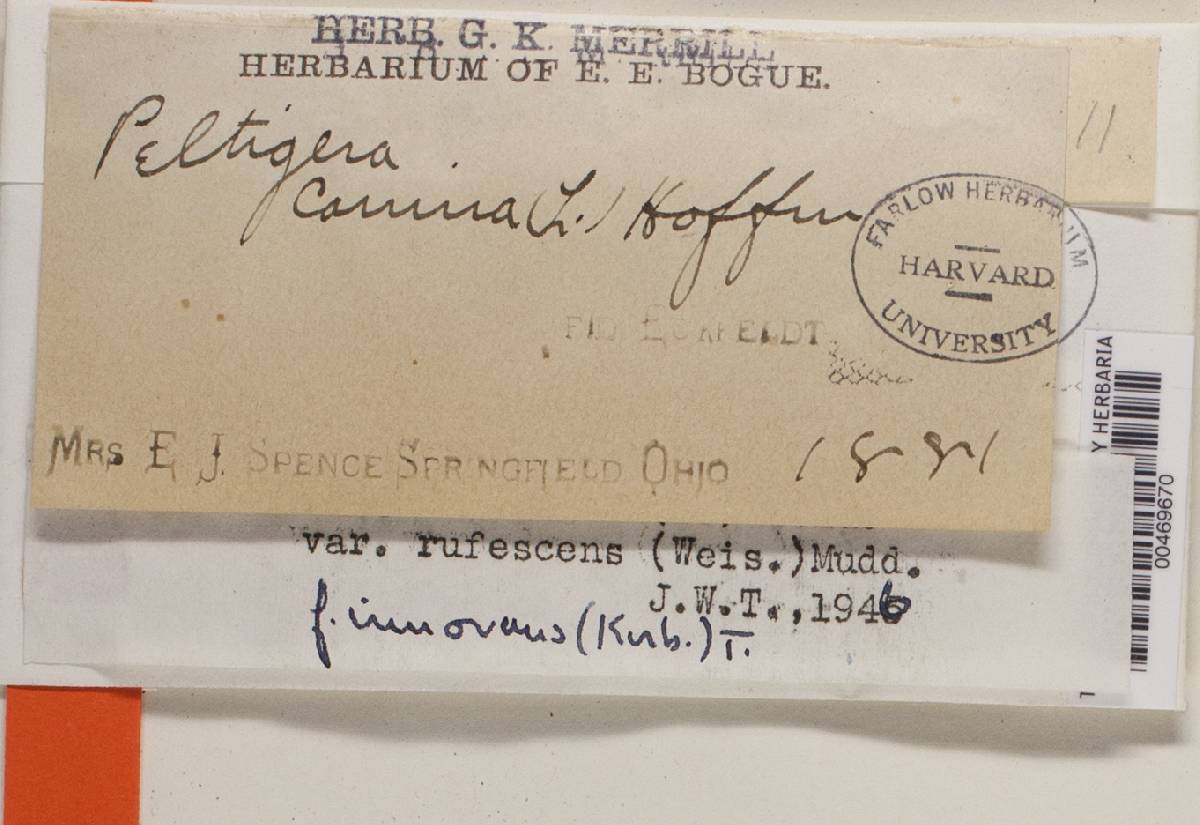 HERB. G. K. MERRILL
HERBARIUM OF E. E. BOGUE.
Peltigera
Canina (L.) Hoffm
11
FARLOW HERBARIUM
HARVARD
UNIVERSITY
ECKFELDT
MRS E J. SPENCE SPRINGFIELD OHIO 1891
var. rufescens (Weis.)Mudd.
J.W.T.,1946
f. innovans (Körb.) T.
Y HERBARIA
00469670